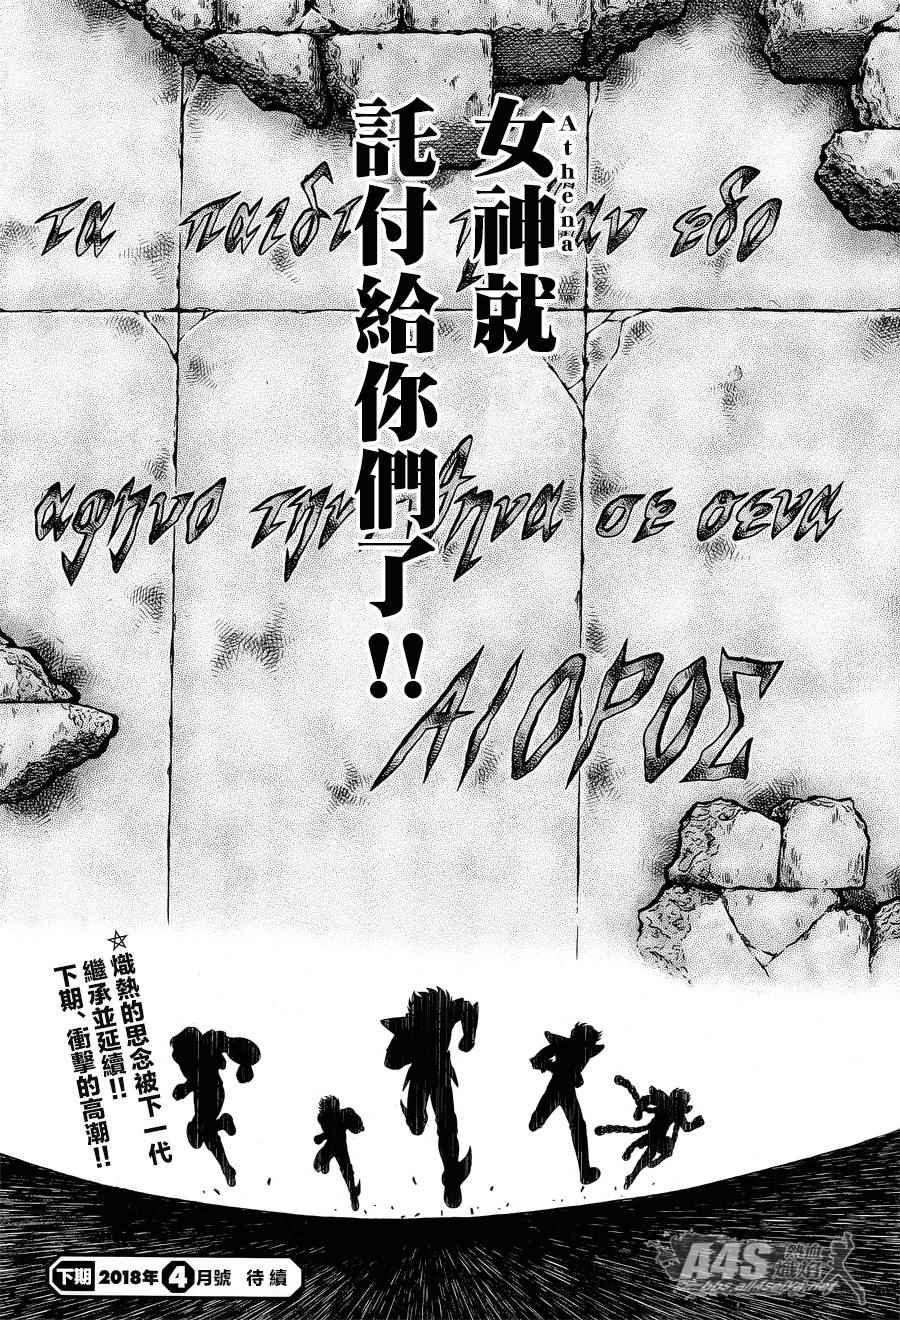 女神就
Athena
託付給你們了!!
τα παιδι ηραν εδο
αφηνο την Αθηνα σε σενα
ΑΙΟΡΟΣ
☆熾熱的思念被下一代
繼承並延續!!
下期、衝擊的高潮!!
下期 2018年4月號 待續
A4S 熱血燃焰